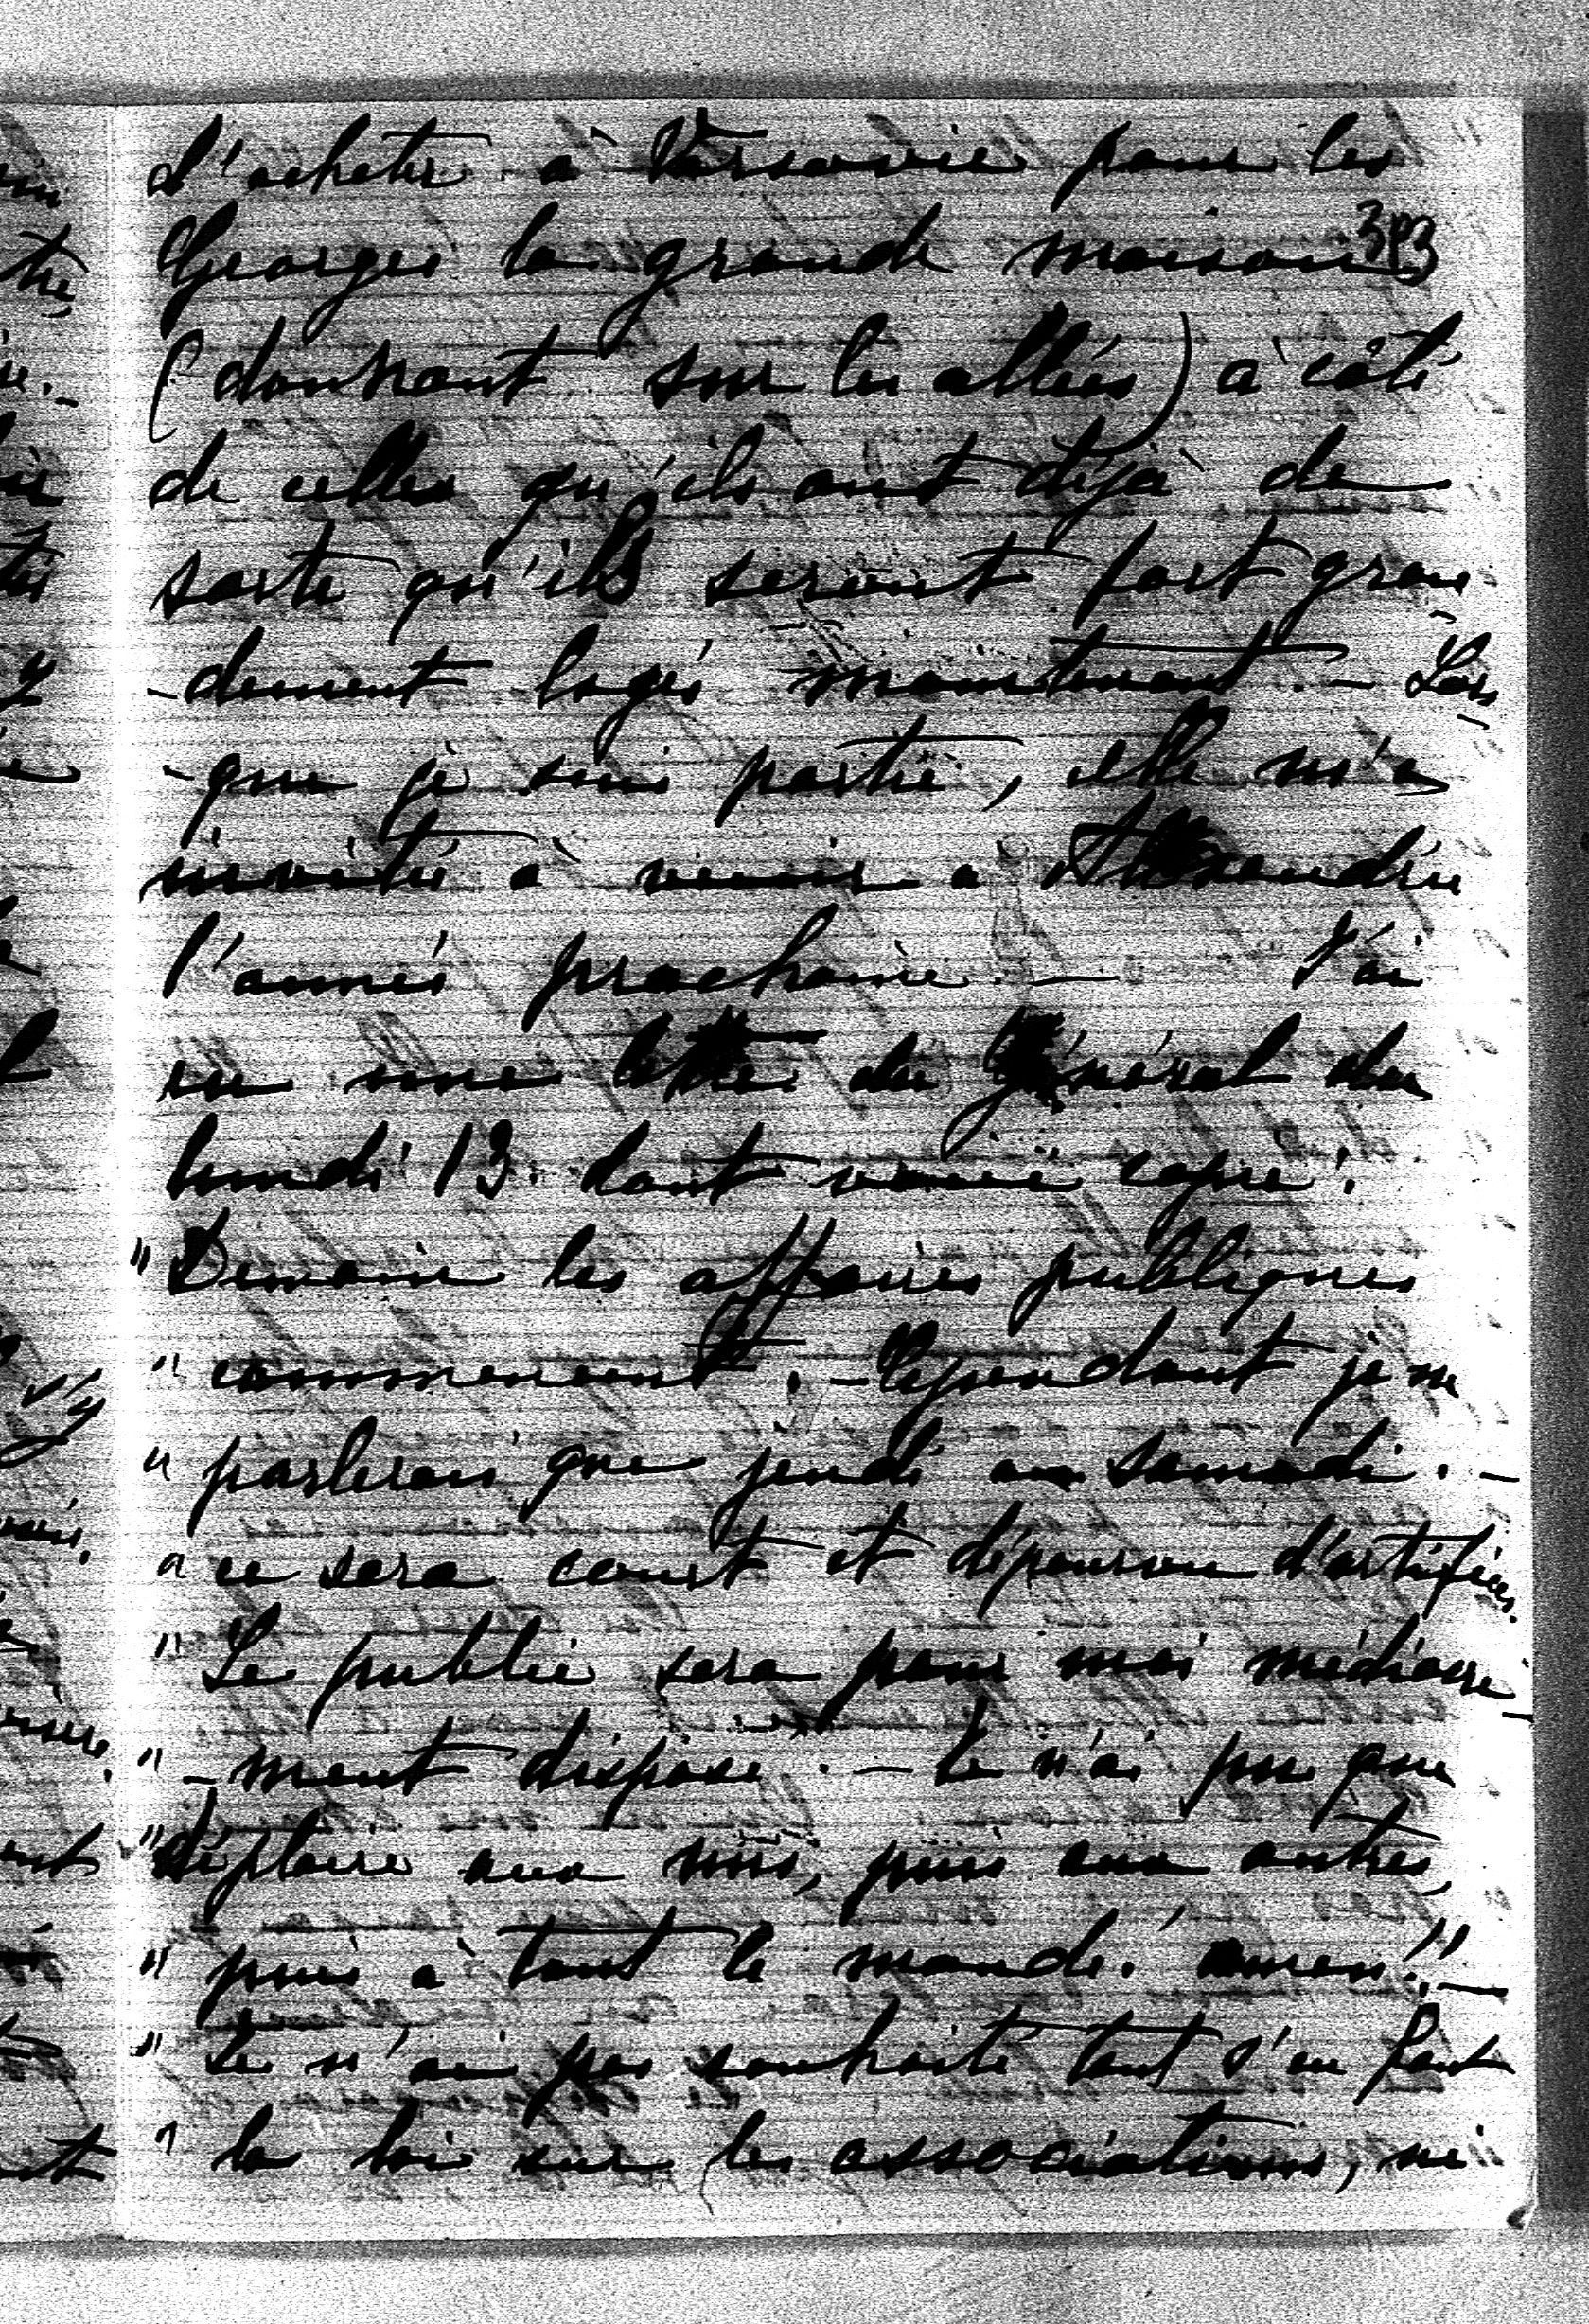 d'acheter à Varsovie pour les
383
Georges la grande maison
(donnant sur les allées) à côté
de celles qu'ils ont déjà de
sorte qu'ils seront fort gran
-dement logés maintenant. — Lors
-que je suis partie, elle m'a
invitée à venir à Alexandrie
l'année prochaine — J'ai
eu une lettre du Général du
lundi 13. dont voici copie:
"Demain les affaires publiques
" commencent. — Cependant je ne
" parlerai que jeudi ou samedi. —
" ce sera court et dépourvu d'artifices.
" Le public sera pour moi médiocre
" -ment disposé. — Je n'ai pu que
"déplaire aux uns, puis aux autres,
" puis à tout le monde. amen!! —
" Je n'ai pas souhaité tant s'en faut
" la loi sur les associations, ni